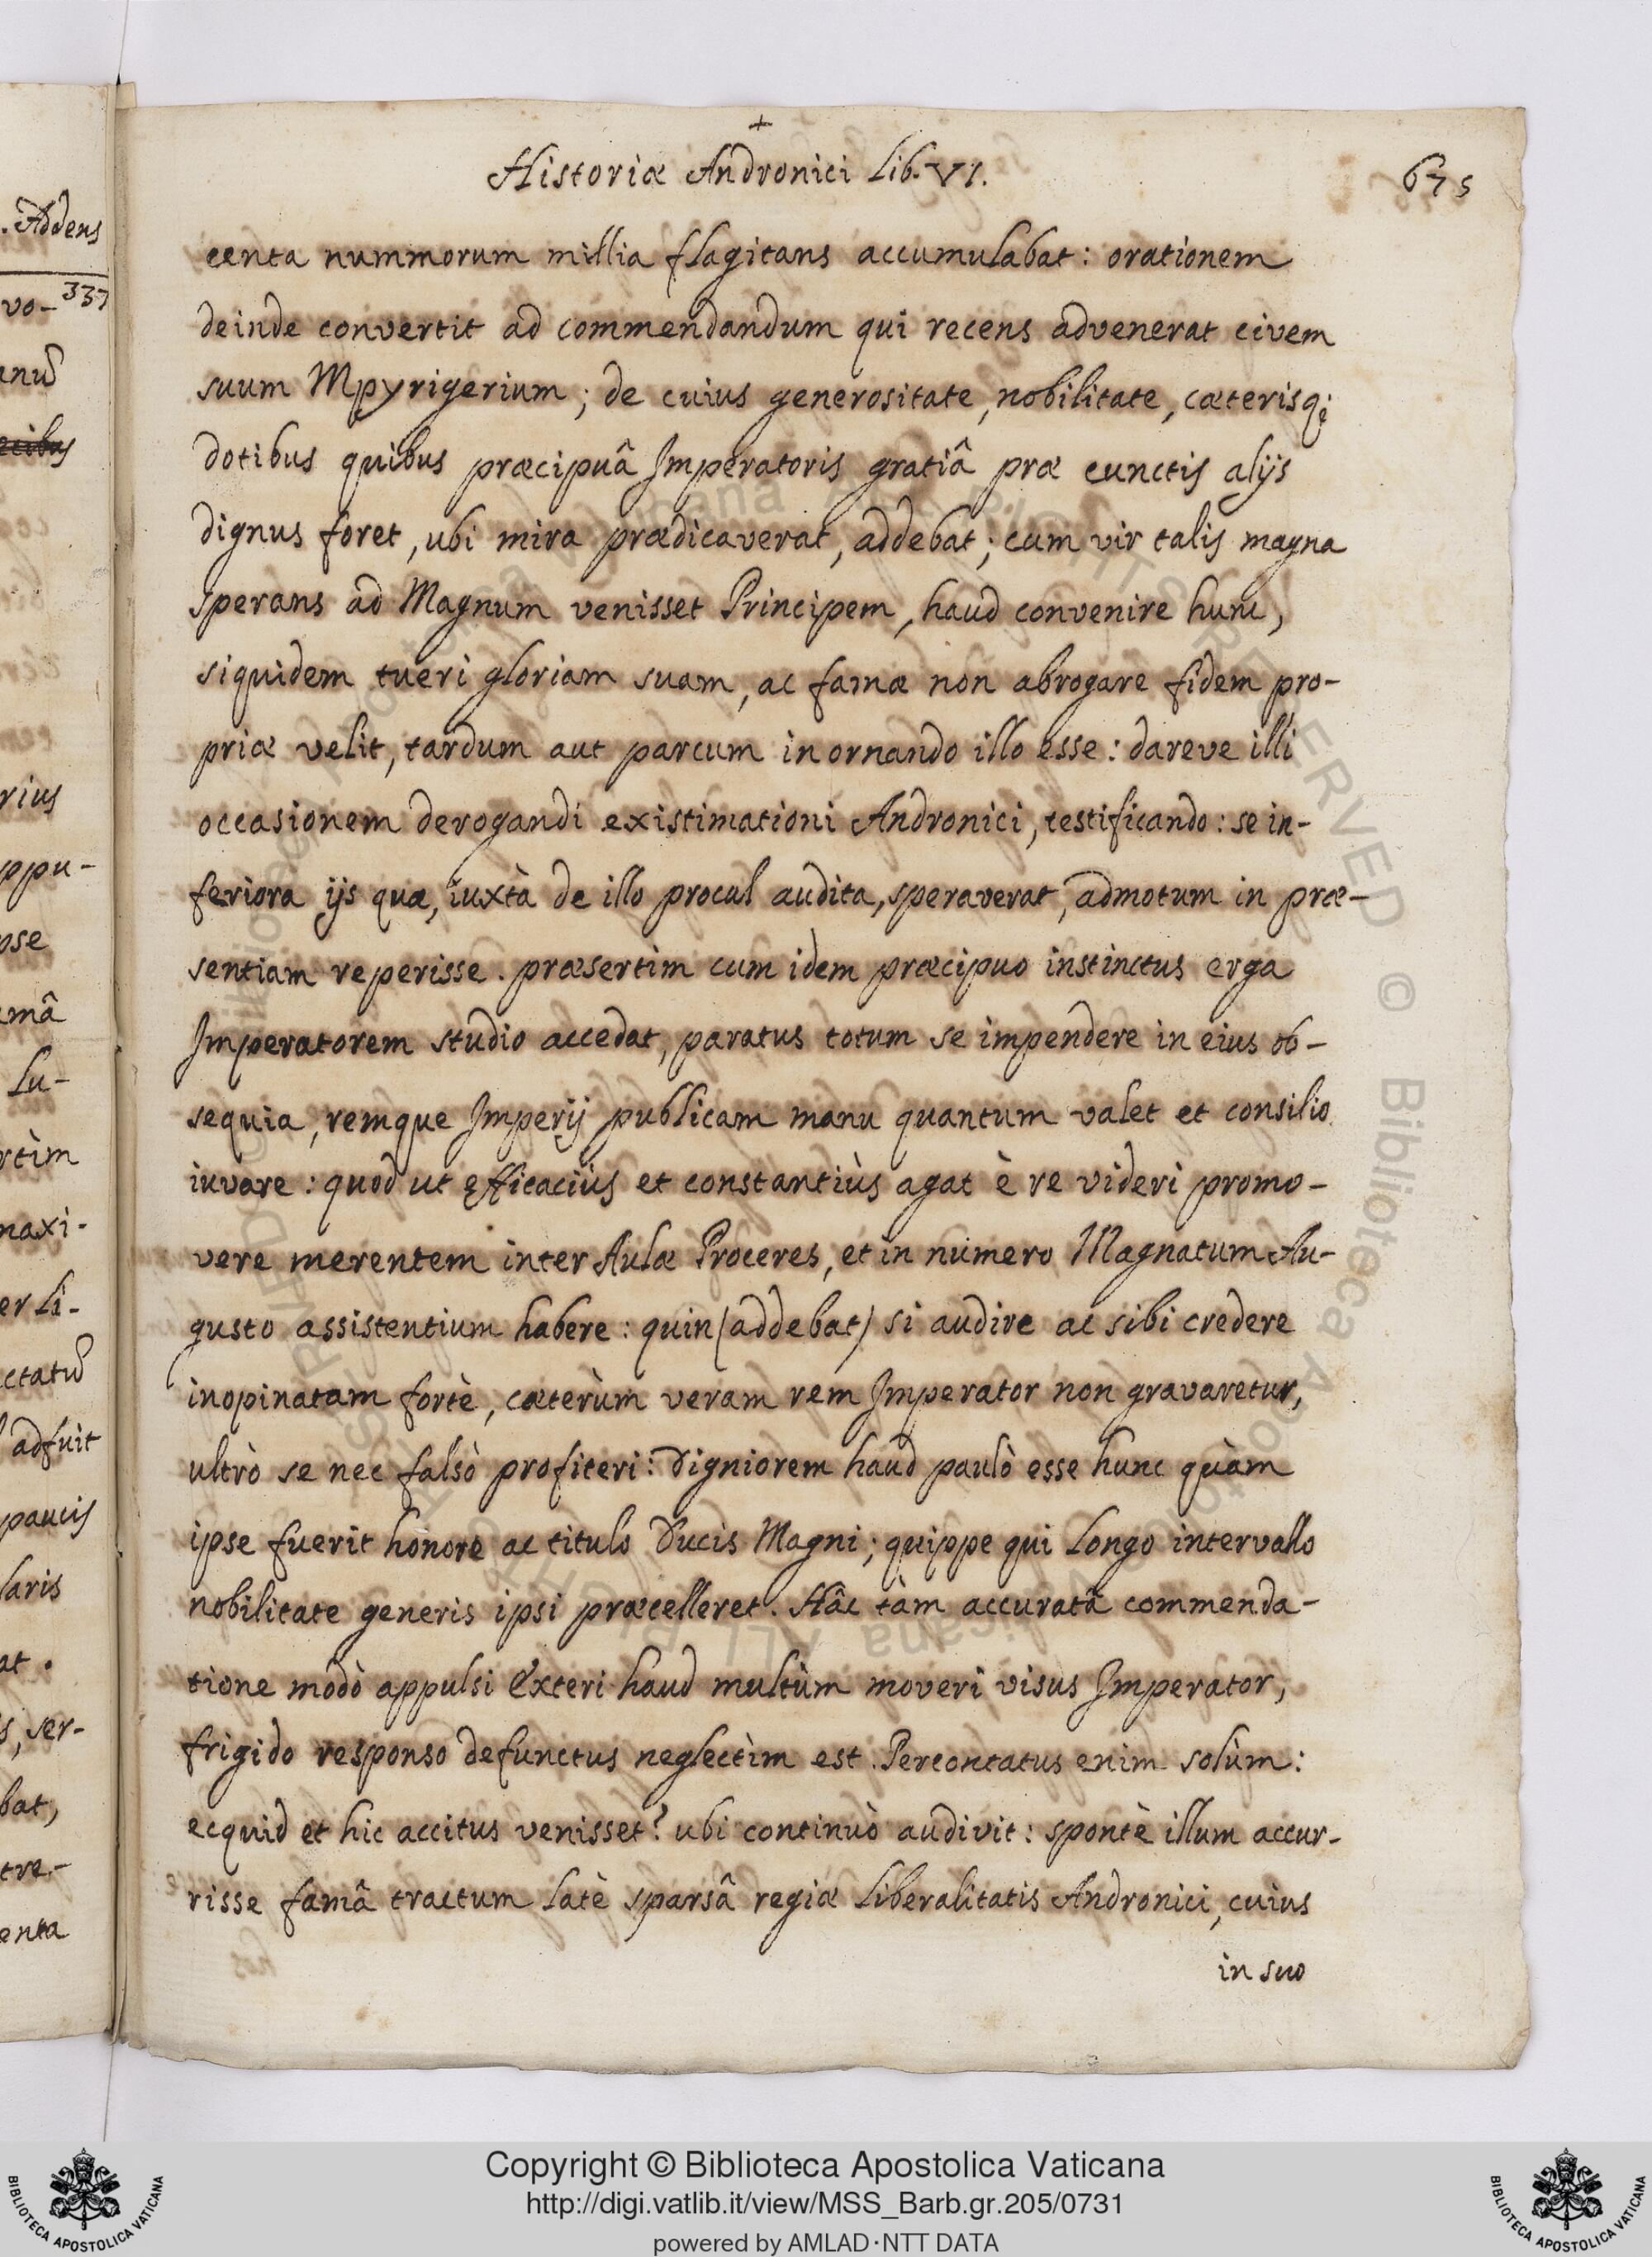 +
Historiæ Andronici Lib. VI.
675
centa nummorum millia flagitans accumulabat: orationem
deinde convertit ad commendandum qui recens advenerat civem
suum Mpyrigerium; de cuius generositate, nobilitate, cæterisq;
dotibus quibus præcipuâ Imperatoris gratiâ præ cunctis alijs
dignus foret, ubi mira prædicaverat, addebat; cum vir talis magna
sperans ad Magnum venisset Principem, haud convenire hunc,
siquidem tueri gloriam suam, ac famæ non abrogare fidem pro-
priæ velit, tardum aut parcum in ornando illo esse: dareve illi
occasionem derogandi existimationi Andronici, testificando: se in-
feriora ijs quæ, iuxtà de illo procul audita, speraverat, admotum in præ-
sentiam reperisse. præsertìm cum idem præcipuo instinctus erga
Imperatorem studio accedat, paratus totum se impendere in eius ob-
sequia, remque Imperij publicam manu quantum valet et consilio
iuvare: quod ut efficaciùs et constantiùs agat è re videri promo-
vere merentem inter Aulæ Proceres, et in numero Magnatum Au-
gusto assistentium habere: quin (addebat) si audire ac sibi credere
inopinatam fortè, cæterùm veram rem Imperator non gravaretur,
ultrò se nec falsò profiteri: Digniorem haud paulò esse hunc quàm
ipse fuerit honore ac titulo Ducis Magni; quippe qui longo intervallo
nobilitate generis ipsi præcelleret. Hâc tàm accuratâ commenda-
tione modò appulsi Exteri haud multùm moveri visus Imperator,
frigido responso defunctus neglectìm est. Percontatus enim solùm:
ecquid et hic accitus venisset? ubi continuò audivit: spontè illum accur-
risse famâ tractum latè sparsâ regiæ liberalitatis Andronici, cuius
in suo
. Addens
337
vo-
ppu-
Lu-
maxi-
er Li-
adfuit
paucis
, ser-
bat,
Copyright © Biblioteca Apostolica Vaticana
http://digi.vatlib.it/view/MSS_Barb.gr.205/0731
powered by AMLAD·NTT DATA
BIBLIOTECA APOSTOLICA VATICANA
BIBLIOTECA APOSTOLICA VATICANA